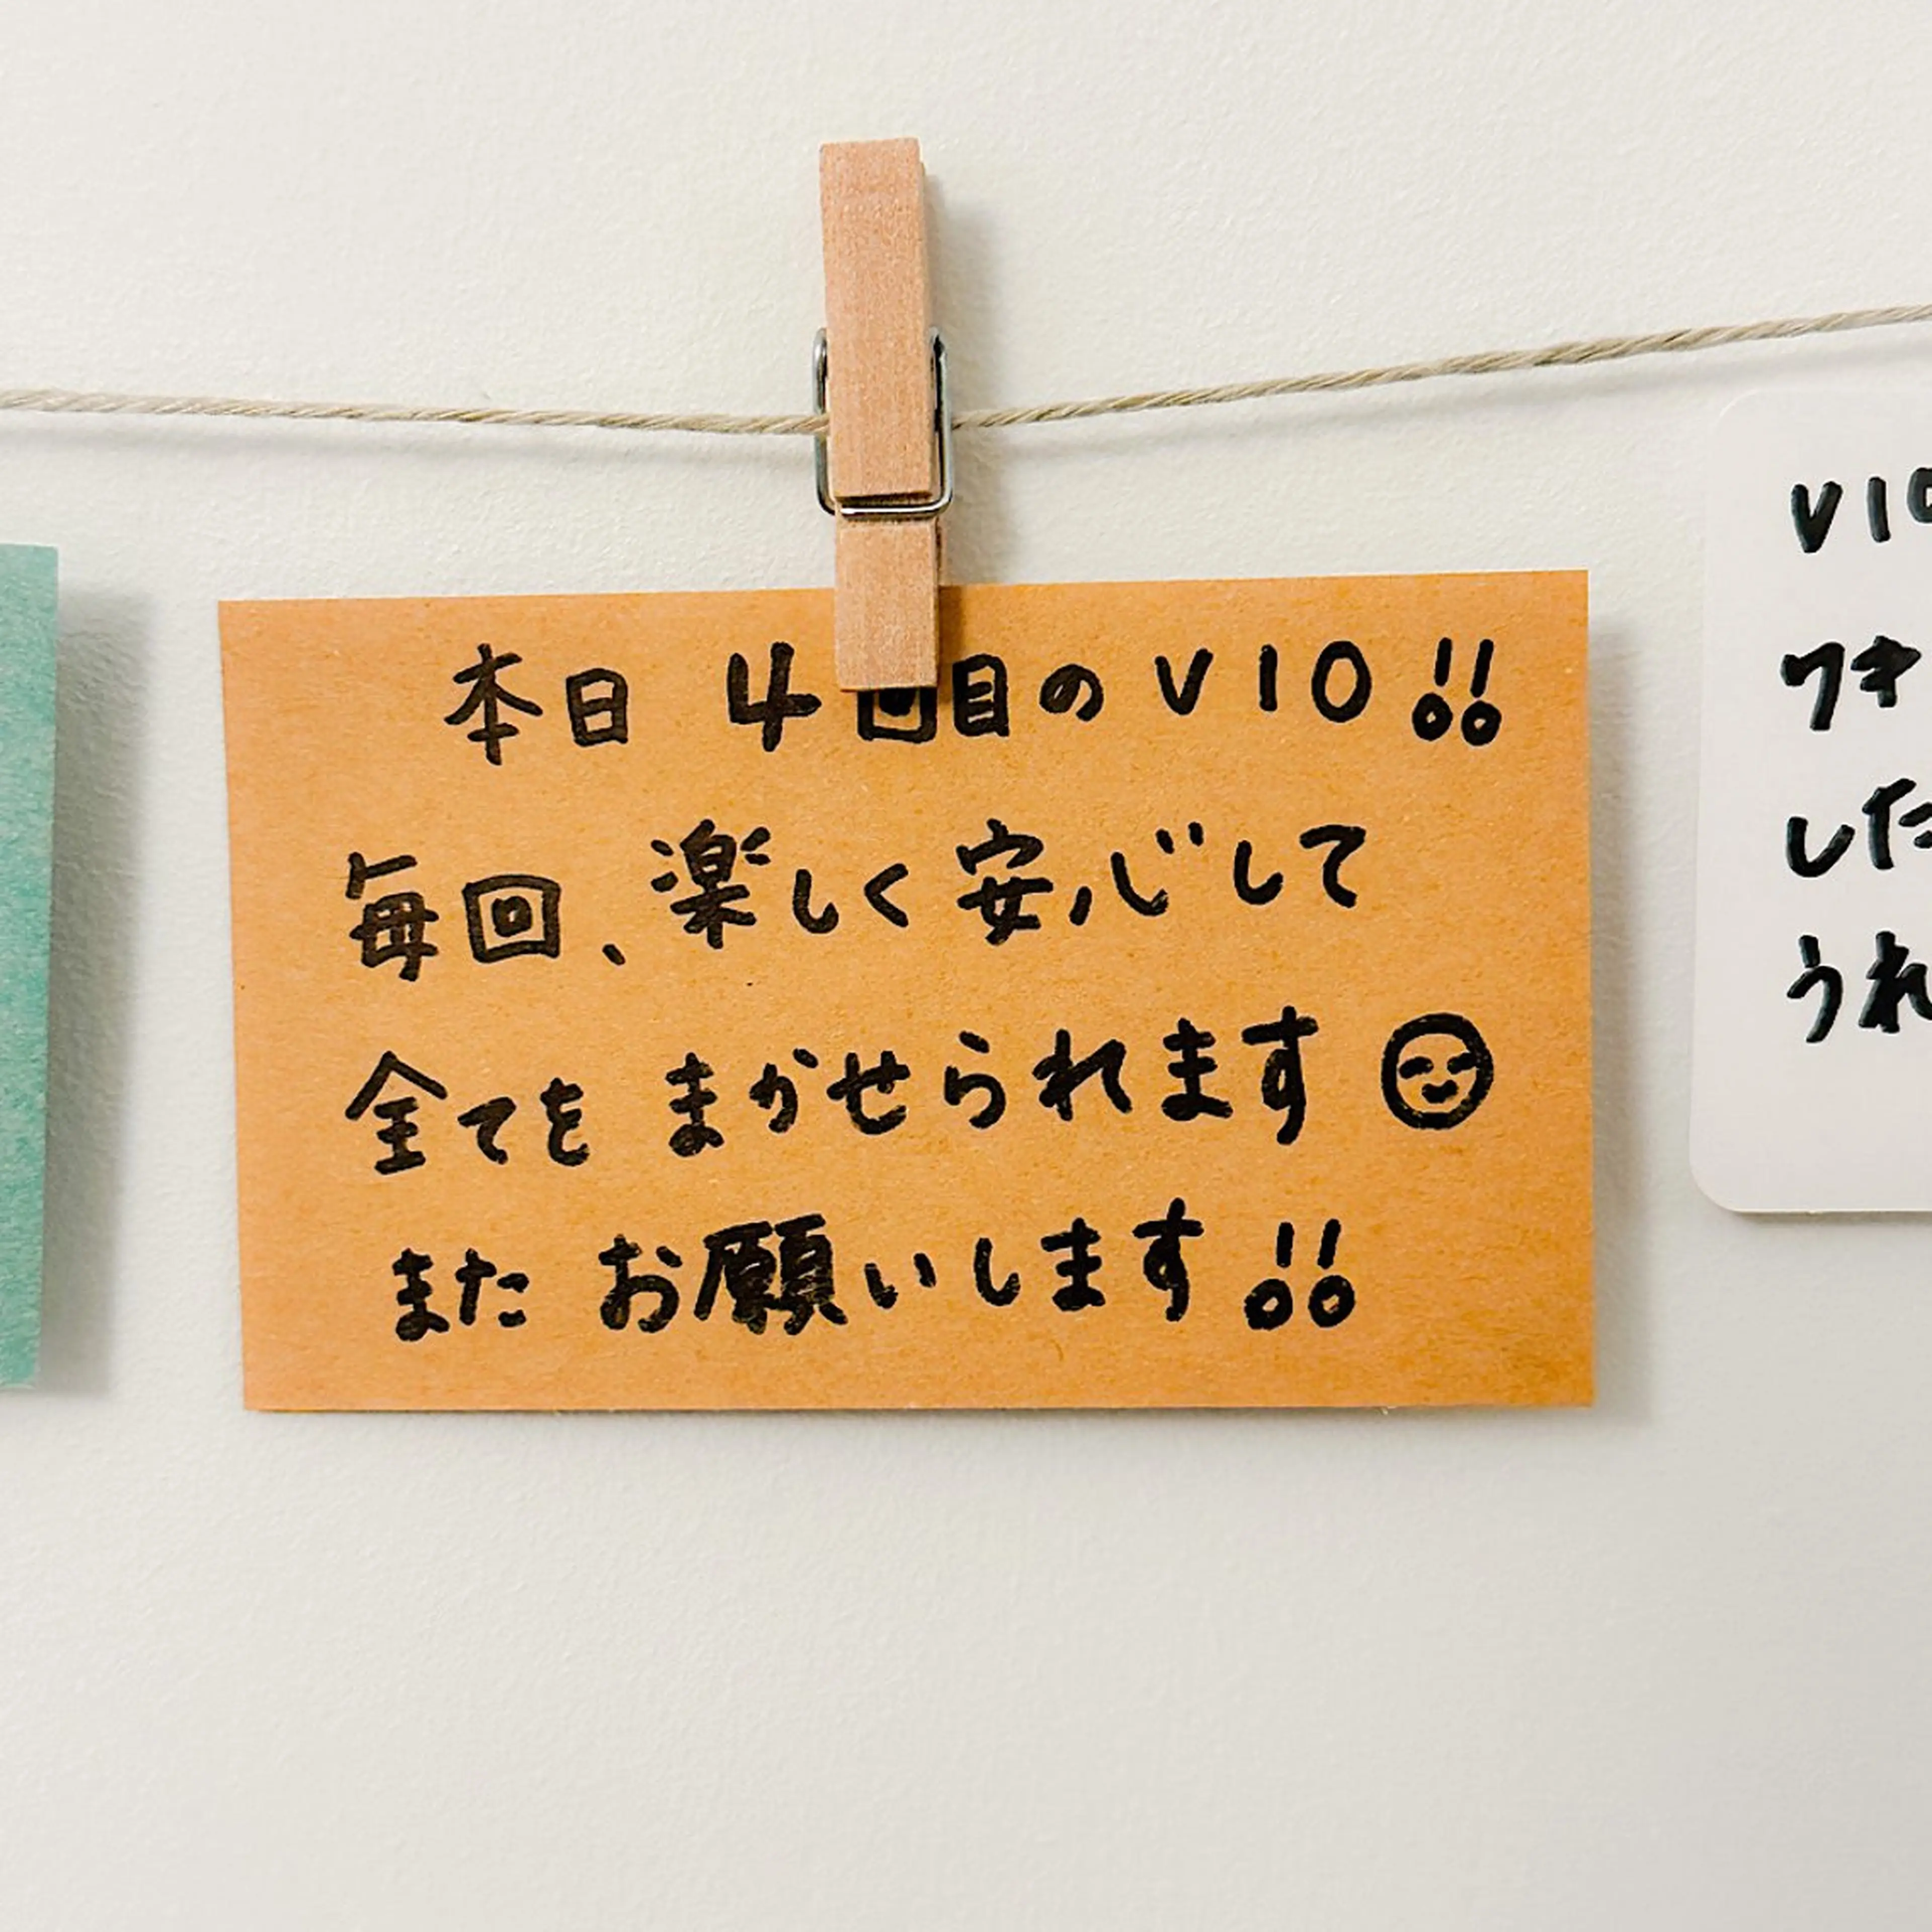 本日 4回目のVIO!!
毎回、楽しく安心して
全てを まかせられます
また お願いします!!
VIO
ワキ
した
うれ